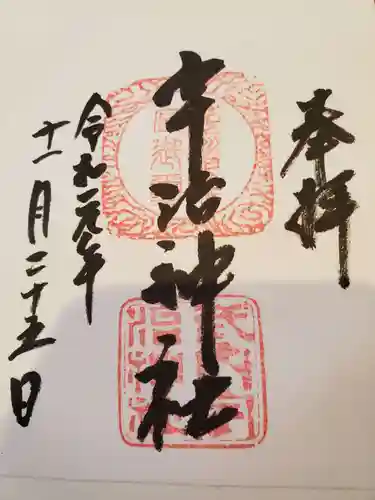 奉拝
宇治神社
令和元年
十一月二十五日